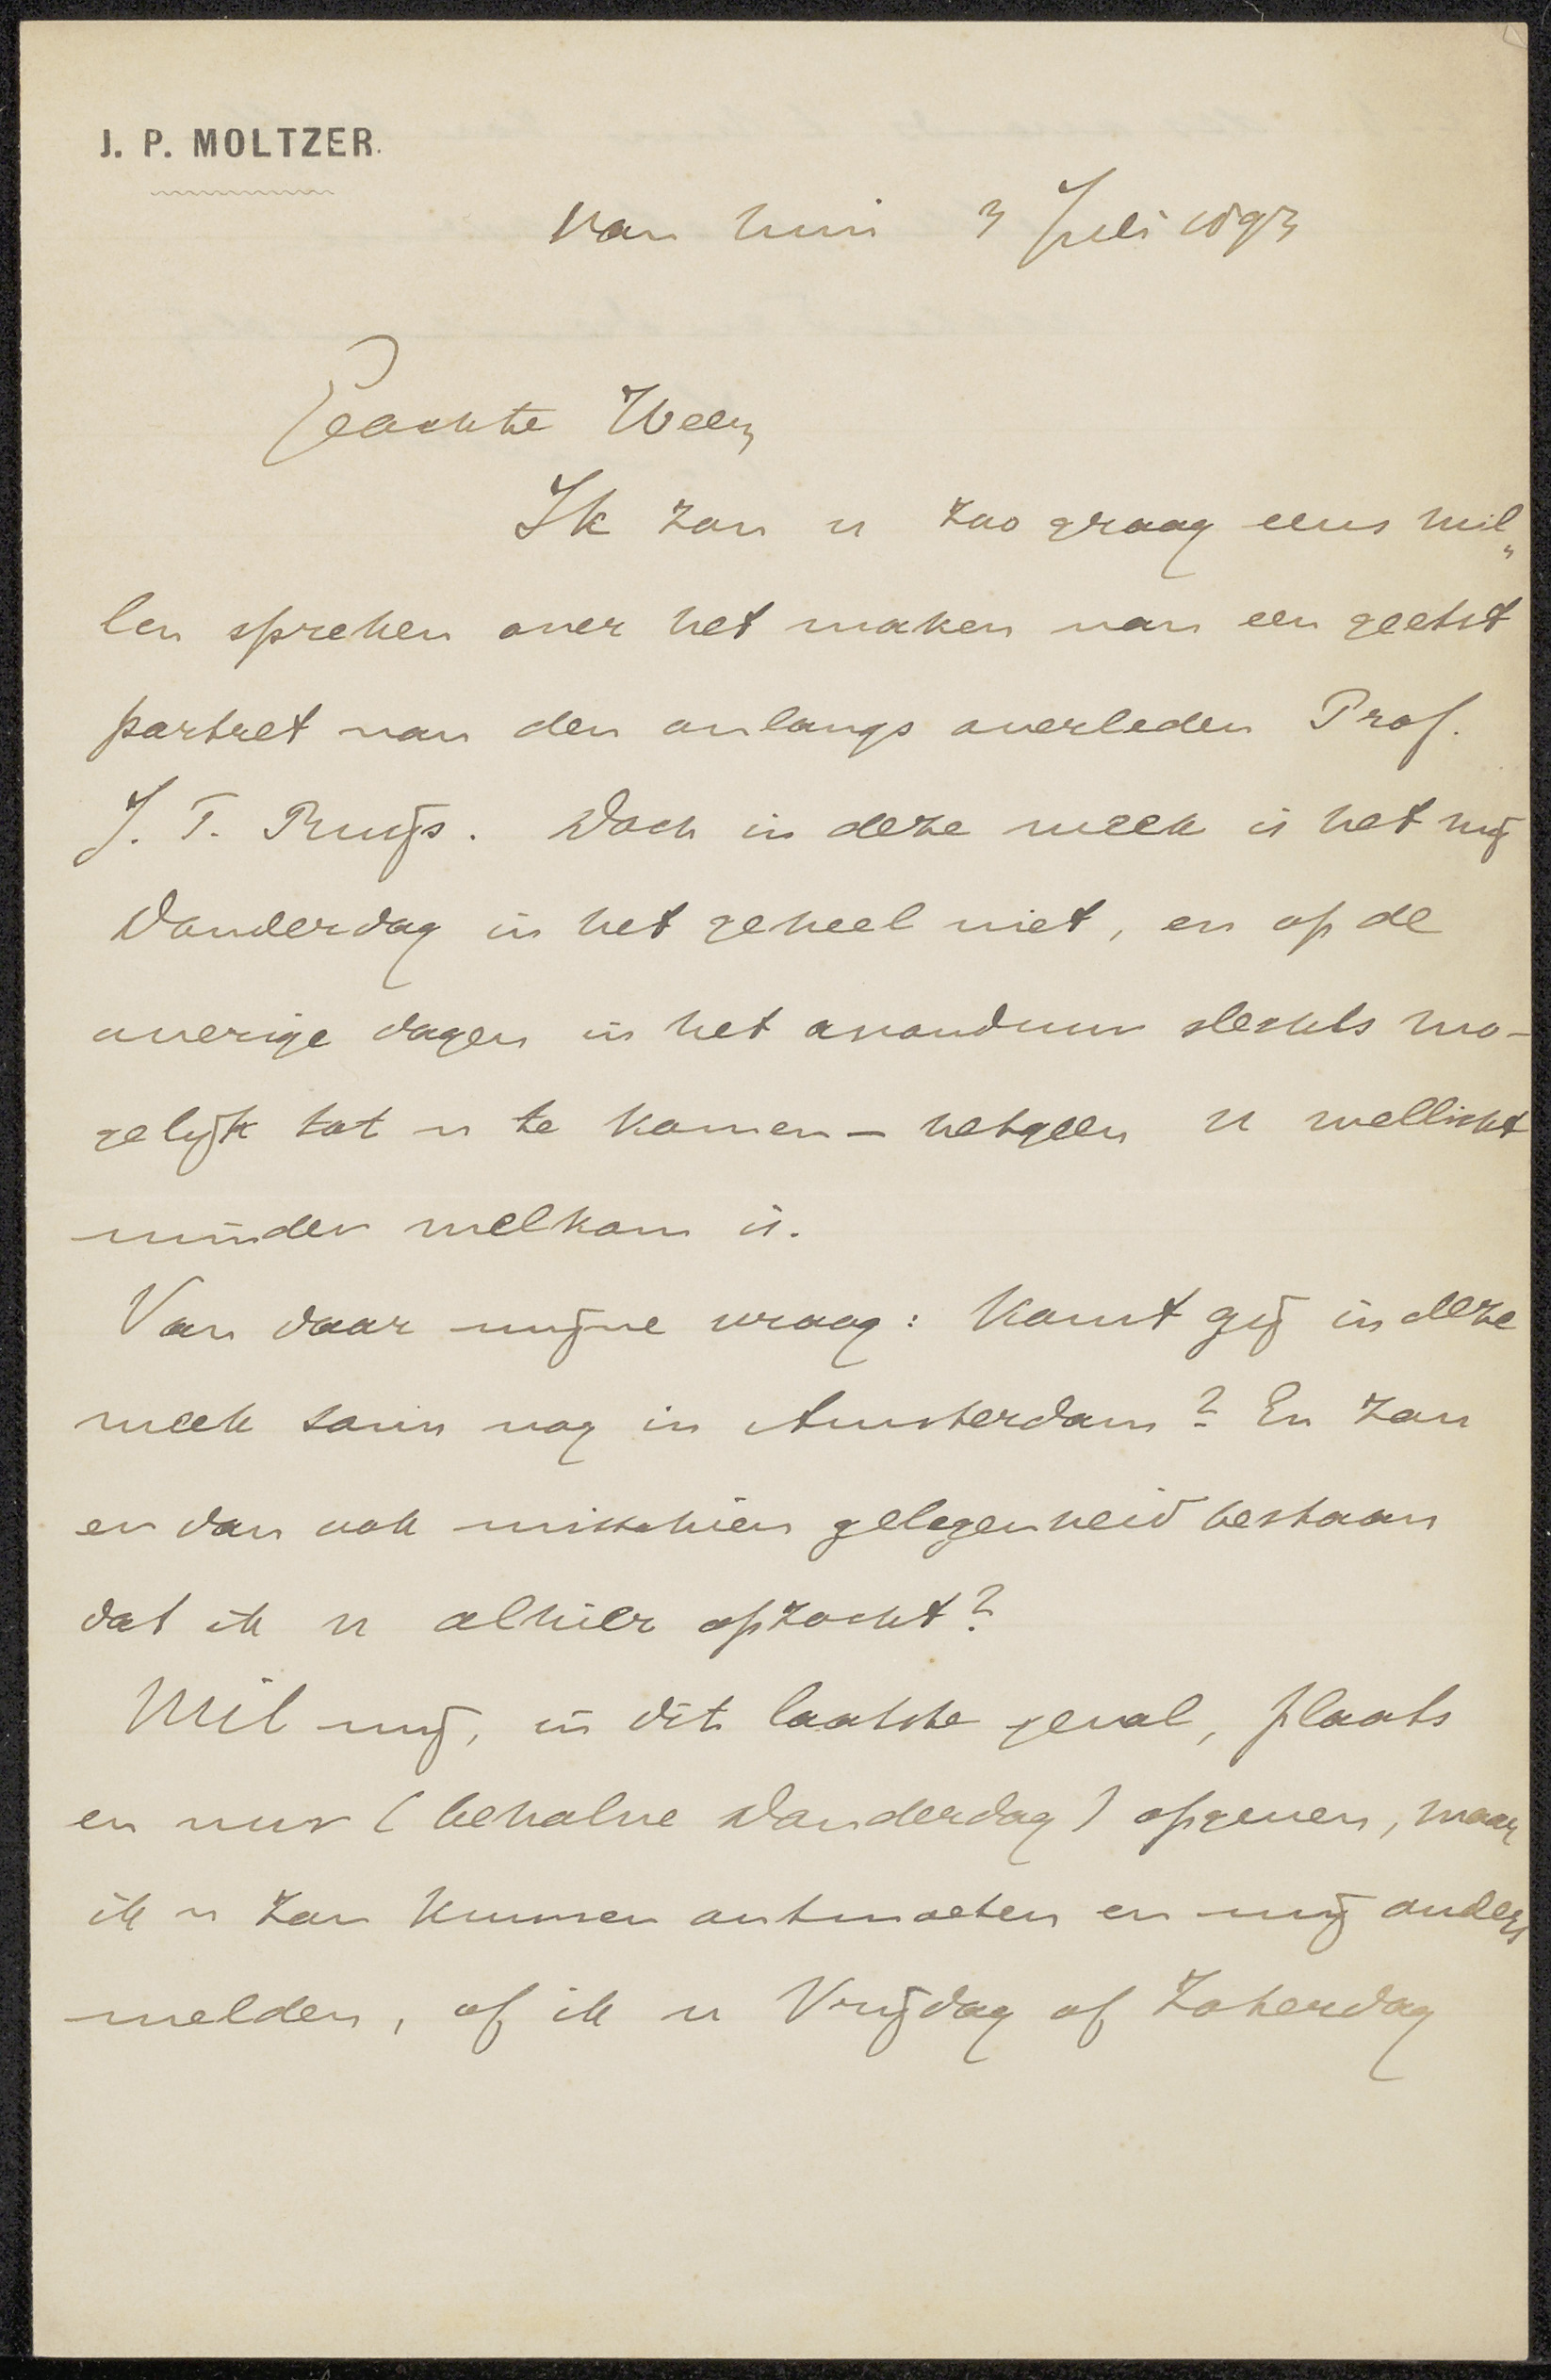 J. P. MOLTZER.
van huis 3 Juli 1893
Geachte Heer,
Ik zou u zoo graag eens wil„
len spreken over het maken van een geëtst
portret van den onlangs overleden Prof.
J. T. Ruijs. Doch in deze week is het mij
Donderdag in het geheel niet, en op de
overige dagen in het avonduur slechts mo-
gelijk tot u te komen - hetgeen u wellicht
minder welkom is.
Van daar mijne vraag: komt gij in deze
week soms nog in Amsterdam? En zou
er dan ook misschien gelegenheid bestaan
dat ik u alhier opzocht?
Wil mij, in dit laatste geval, plaats
en uur (behalve Donderdag) opgeven, waar
ik u zou kunnen ontmoeten en mij anders
melden, of ik u Vrijdag of Zaterdag